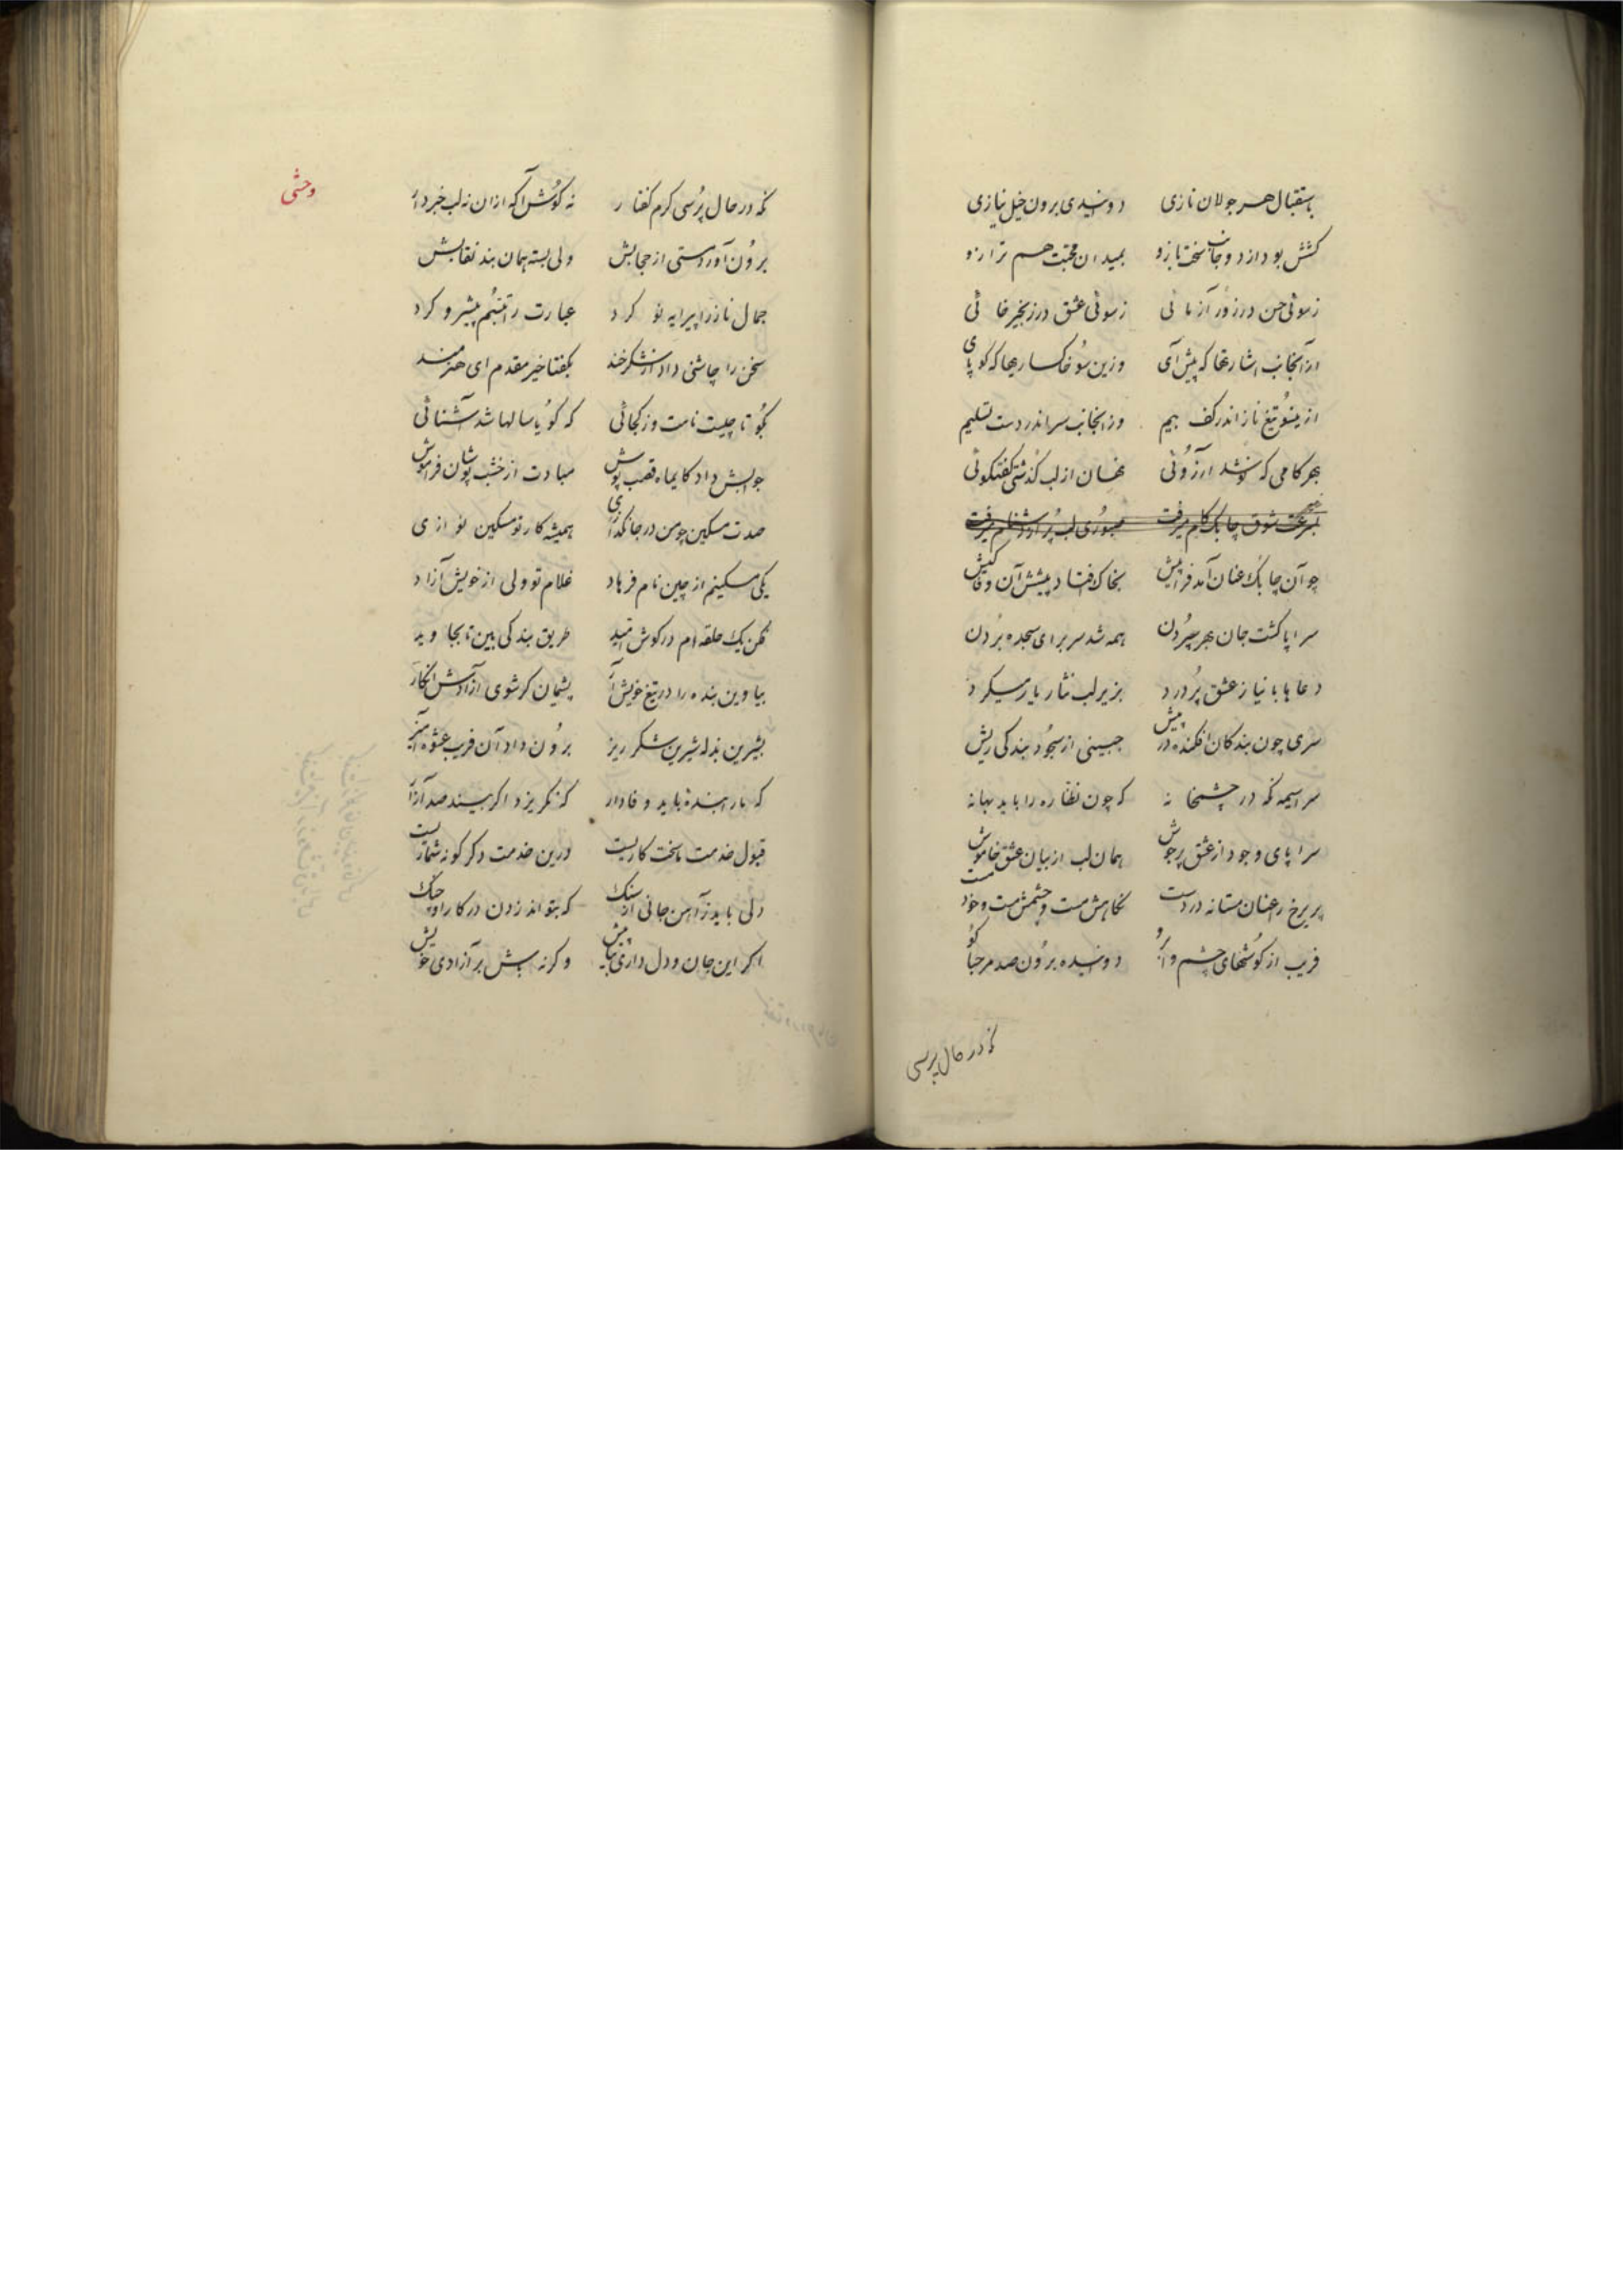 باستقبال هر جولان نازی دویدی برون خیل نیازی
کشش بود از دو جانب سخت بازو بمیدان محبت هم ترازو
ز سوئی حسن در زور آزمائی ز سوئی عشق در زنجیر خائی
از آنجانب اشارتها که پیش آی وزین سو خاکساریها که کو پای
ازینسو تیغ ناز اندر کف بیم وز انجانب سر اندر دست تسلیم
بهر کامی که شد آرزوئی نهان از لب گذشتی گفتگوئی
بسرعت شوق چابک گام میرفت صبوری لب پر از دشنام میرفت
چو آن چابک عنان آمد فراپیش بخاک افتاد پیشش آن وفاکیش
سراپا کشت جان بهر سپردن همه شد سر برای سجده بردن
دعاها با نیاز عشق پرورد بزیر لب نثار یار میکرد
سری چون بندکان افکنده در پیش جبینی از سجود بندکی ریش
سراسیمه نکه در چشمخانه که چون نظاره را باید بهانه
سراپای وجود از عشق پرجوش همان لب از بیان عشق خاموش
پریرخ را عنان مستانه در دست نکاهش مست و چشمش مست و خود مست
فریب از کوشهای چشم و ابرو دوانیده برون صد مرحبا کو
نکه در حال پرسی
وحشی
نکه در حال پرسی کرم کفتار نه کوش آکه ازان نه لب خبردار
برون آورد مستی از حجابش ولی بسته همان بند نقابش
جمال ناز را پیرایه نو کرد عبارت را تبسم پیشرو کرد
سخن را چاشنی داد از شکرخند بکفتا خیر مقدم ای هنرمند
بکو تا چیست نامت وز کجائی که کویا سالها شد آشنائی
جوابش داد کایماه قصب پوش مبادت از خشب پوشان فراموش
صدت مسکین چو من در جان کدازی همیشه کار تو مسکین نوازی
یکی مسکینم از چین نام فرهاد غلام تو ولی از خویش آزاد
بمن یک حلقه ام در کوش امید طریق بندکی بین تا بجاوید
بیا وین بنده را در بیع خویش آر پشیمان کر شوی آزادش انکار
بشیرین بذله شیرین شکرریز برون داد آن فریب عشوه آمیز
که ما را بندهٔ باید وفادار که نکریزد اکر بیند صد آزار
قبول خدمت ما سخت کاریست درین خدمت دکر کونه شماریست
دلی باید ز آهن جانی از سنک که بتواند زدن در کار ما چنک
اکر این جان و دل داری بنه پیش وکرنه باش بر آزادی خویش